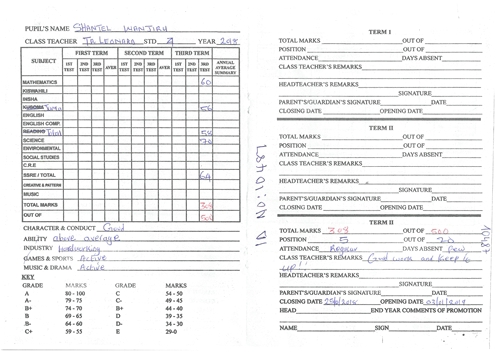 PUPIL'S NAME SHANTEL WANJIRU
CLASS TEACHER Tr Leonard STD 4 YEAR 2018
SUBJECT FIRST TERM SECOND TERM THIRD TERM ANNUAL AVERAGE SUMMARY
1ST TEST 2ND TEST 3RD TEST AVER 1ST TEST 2ND TEST 3RD TEST AVER 1ST TEST 2ND TEST 3RD TEST
MATHEMATICS 60
KISWAHILI
INSHA
KUSOMA 56
ENGLISH
ENGLISH COMP.
READING Total 58
SCIENCE 70
ENVIRONMENTAL
SOCIAL STUDIES
C.R.E
SSRE / TOTAL 64
CREATIVE & PATTERN
MUSIC
TOTAL MARKS 308
OUT OF 500
CHARACTER & CONDUCT Good
ABILITY above average
INDUSTRY hardworking
GAMES & SPORTS Active
MUSIC & DRAMA Active
KEY
GRADE MARKS GRADE MARKS
A 80-100 C 54-50
A- 79-75 C- 49-45
B+ 74-70 B+ 44-40
B 69-65 D 39-35
B- 64-60 D- 34-30
C+ 59-55 E 29-0
ID No: 010487
TERM I
TOTAL MARKS OUT OF
POSITION OUT OF
ATTENDANCE DAYS ABSENT
CLASS TEACHER'S REMARKS
HEADTEACHER'S REMARKS
SIGNATURE
PARENT'S/GUARDIAN'S SIGNATURE DATE
CLOSING DATE OPENING DATE
TERM II
TOTAL MARKS OUT OF
POSITION OUT OF
ATTENDANCE DAYS ABSENT
CLASS TEACHER'S REMARKS
HEADTEACHER'S REMARKS
SIGNATURE
PARENT'S/GUARDIAN'S SIGNATURE DATE
CLOSING DATE OPENING DATE
TERM II
TOTAL MARKS 308 OUT OF 500
POSITION 5 OUT OF 20
ATTENDANCE Regular DAYS ABSENT Few
CLASS TEACHER'S REMARKS Good work and keep it
up!!
HEADTEACHER'S REMARKS
SIGNATURE
PARENT'S/GUARDIAN'S SIGNATURE DATE
CLOSING DATE OPENING DATE 03/01/2019
HEAD END YEAR COMMENTS OF PROMOTION
NAME SIGN DATE